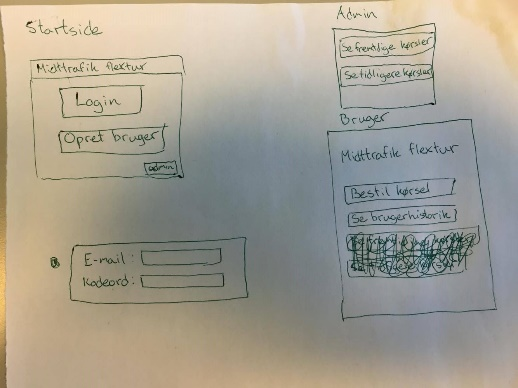 Startside
Midttrafik flextur
Login
Opret bruger
admin
E-mail :
Kodeord :
Admin
Se fremtidige kørsler
Se tidligere kørsler
Bruger
Midttrafik flextur
Bestil kørsel
Se brugerhistorik